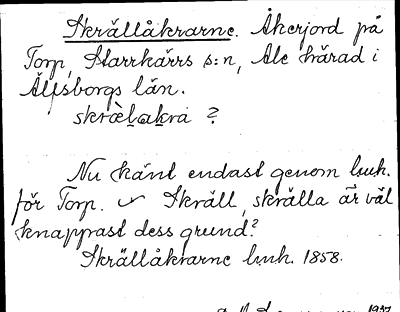 Skrällåkrarne. Åkerjord på
Torp, Starrkärrs s:n, Ale härad i
Älfsborgs län.
skræ̀lakra ?
Nu känt endast genom luuh.
för Torp. Skräll, skrälla är väl
knappast dess grund?
Skrällåkrarne luuh. 1858.
1937